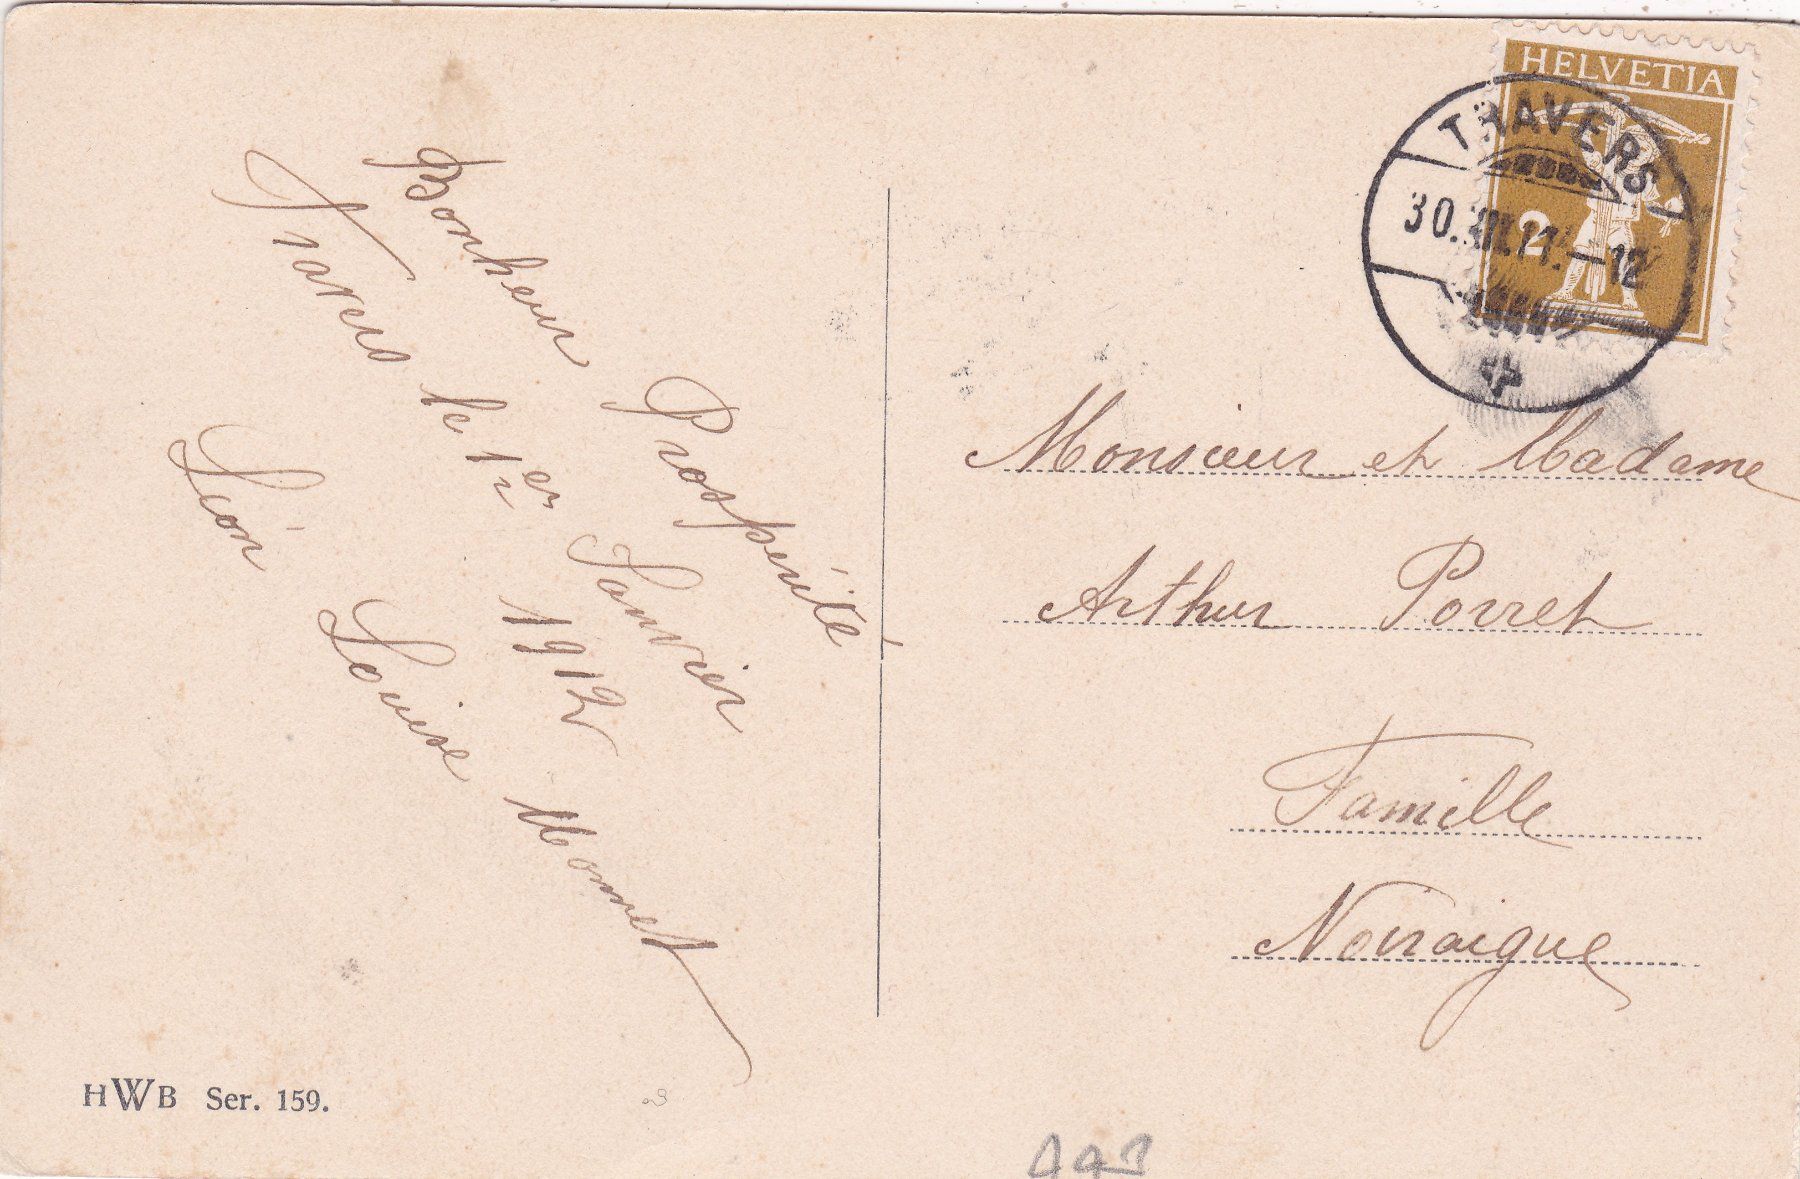 Bonheur Prospérité
Travers le 1er Janvier
1912
Léon Louise Monnet
HWB Ser. 159.
HELVETIA
2
TRAVERS
30.XII.11.-12
Monsieur et Madame
Arthur Porret
Famille
Noiraigue